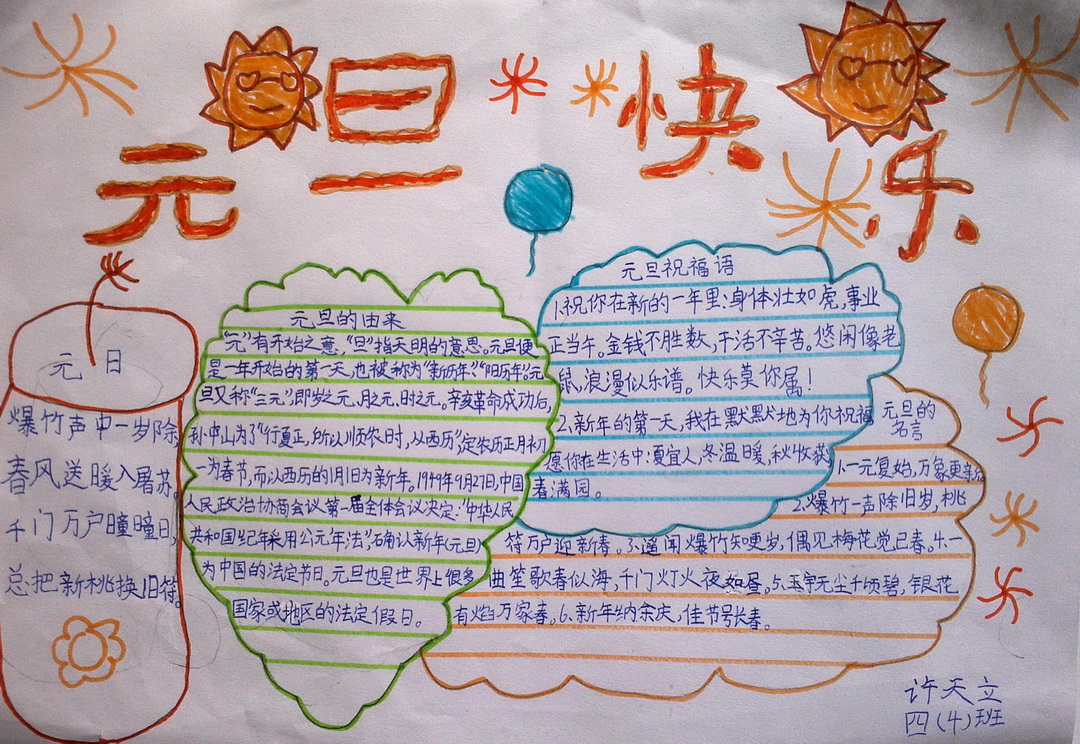 元旦快乐
元日
爆竹声中一岁除
春风送暖入屠苏。
千门万户曈曈日,
总把新桃换旧符。
元旦的由来
“元”有开始之意,“旦”指天明的意思。元旦便
是一年开始的第一天,也被称为“新历年”“阳历年”。元
旦又称“三元”即岁之元、月之元、时之元。辛亥革命成功后,
孙中山为了“行夏正,所以顺农时,从西历”,定农历正月初
一为春节,而以西历的1月1日为新年。1949年9月27日,中国
人民政治协商会议第一届全体会议决定:“中华人民
共和国纪年采用公元年法”,确认新年(元旦)
为中国的法定节日。元旦也是世界上很多
国家或地区的法定假日。
元旦祝福语
1.祝你在新的一年里:身体壮如虎,事业
正当午。金钱不胜数,干活不辛苦。悠闲像老
鼠,浪漫似乐谱。快乐莫你属!
2.新年的第一天,我在默默地为你祝福
愿你在生活中:夏宜人,冬温暖,秋收获
春满园。
元旦的
名言
1.一元复始,万象更新
2.爆竹一声除旧岁,桃
符万户迎新春。3.遥闻爆竹知更岁,偶见梅花觉已春。4.一
曲笙歌春似海,千门灯火夜如昼。5.玉宇无尘千顷碧,银花
有焰万家春。6.新年纳余庆,佳节号长春。
许天立
四(4)班